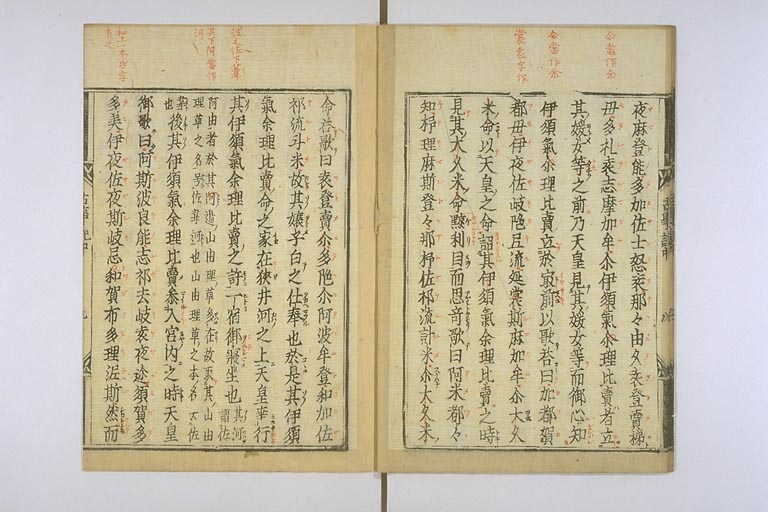 夜麻登能多加佐士怒袁那々由久袁登賣梯
毋多礼袁志摩加牟尒伊須氣余理比賣者立
其媛女等之前乃天皇見其媛女等而御心知
伊須氣余理比賣立於㝡前以歌荅曰加都賀
都毋伊夜佐岐陁弖流延裳斯麻加牟尒大久
米命以天皇之命詔其伊須氣余理比賣之時
見其大久米命黥利目而思奇歌曰阿米都々
知杼理麻斯登々那杼佐祁流計米尒大久米
命荅歌曰袁登賣尒多陁尒阿波牟登和加佐
祁流斗米故其嬢子白之仕奉也於是其伊須
氣余理比賣命之家在狹井河之上天皇幸行
其伊須氣余理比賣之許一宿御寢坐也
其河謂佐
阿由者於其河邊山由理草多在故取其山由
理草之名号佐韋河也山由理草之本名云佐
韋也
後其伊須氣余理比賣叅入宮内之時天皇
御歌曰阿斯波良能志祁去岐袁夜迩須賀多
多美伊夜佐夜斯岐忌和賀布多理泥斯然而
尒當作余
尒當作余
裳袁乎作
河